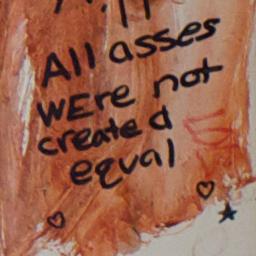 All asses
WEre not
created
equal